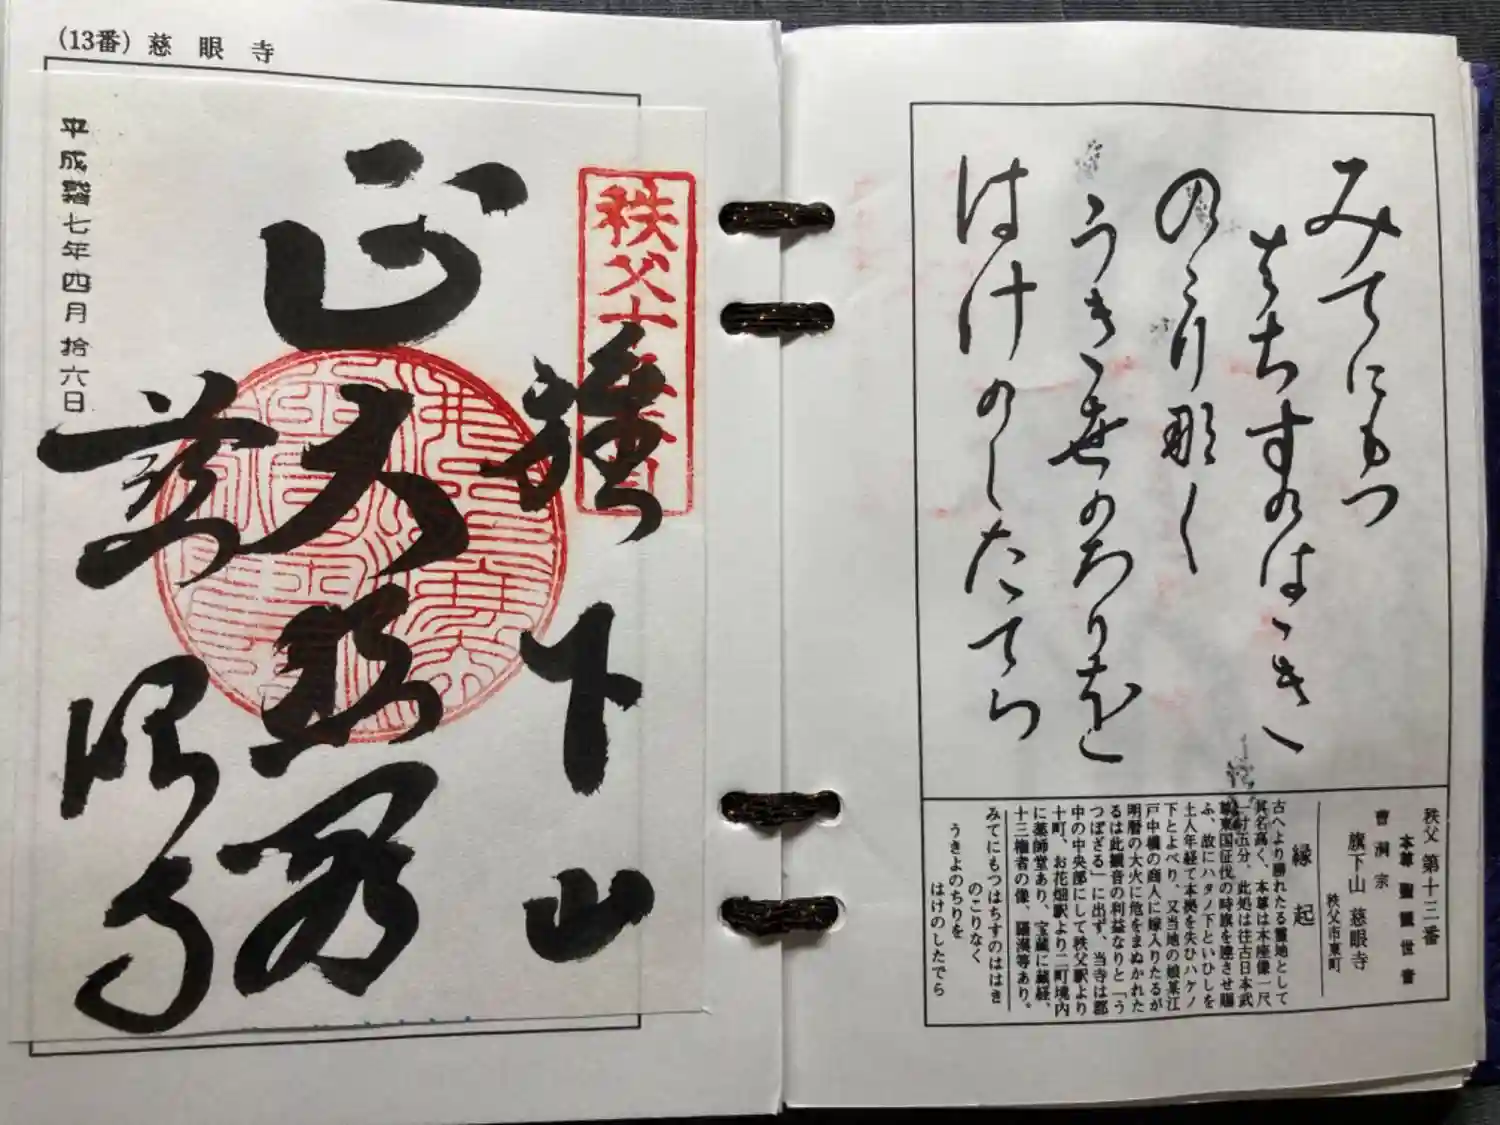 (13番) 慈眼寺
平成貳拾七年四月拾六日
秩父十三番
旗下山
正大悲殿
慈眼寺
みてにもつ
はちすのはゝき
のこり那く
うきよのちりを
はけのしたてら
秩父 第十三番
本尊 聖観世音
曹洞宗
旗下山 慈眼寺
秩父市東町
縁起
古へより勝れたる霊地として
其名高く、本尊は木座像一尺
一寸五分、此処は往古日本武
尊東国征伐の時旗を建させ賜
ふ、故にハタノ下といひしを
土人年経て本拠を失ひハケノ
下とよべり、又当地の娘某江
戸中橋の商人に嫁入りたるが
明暦の大火に危をまぬかれた
るは此観音の利益なりと「う
つぼざる」に出ず、当寺は郡
中の中央部にして秩父駅より
十町、お花畑駅より二町境内
に薬師堂あり、宝蔵に蔵経、
十三権者の像、羅漢等あり。
みてにもつはちすのははき
のこりなく
うきよのちりを
はけのしたでら